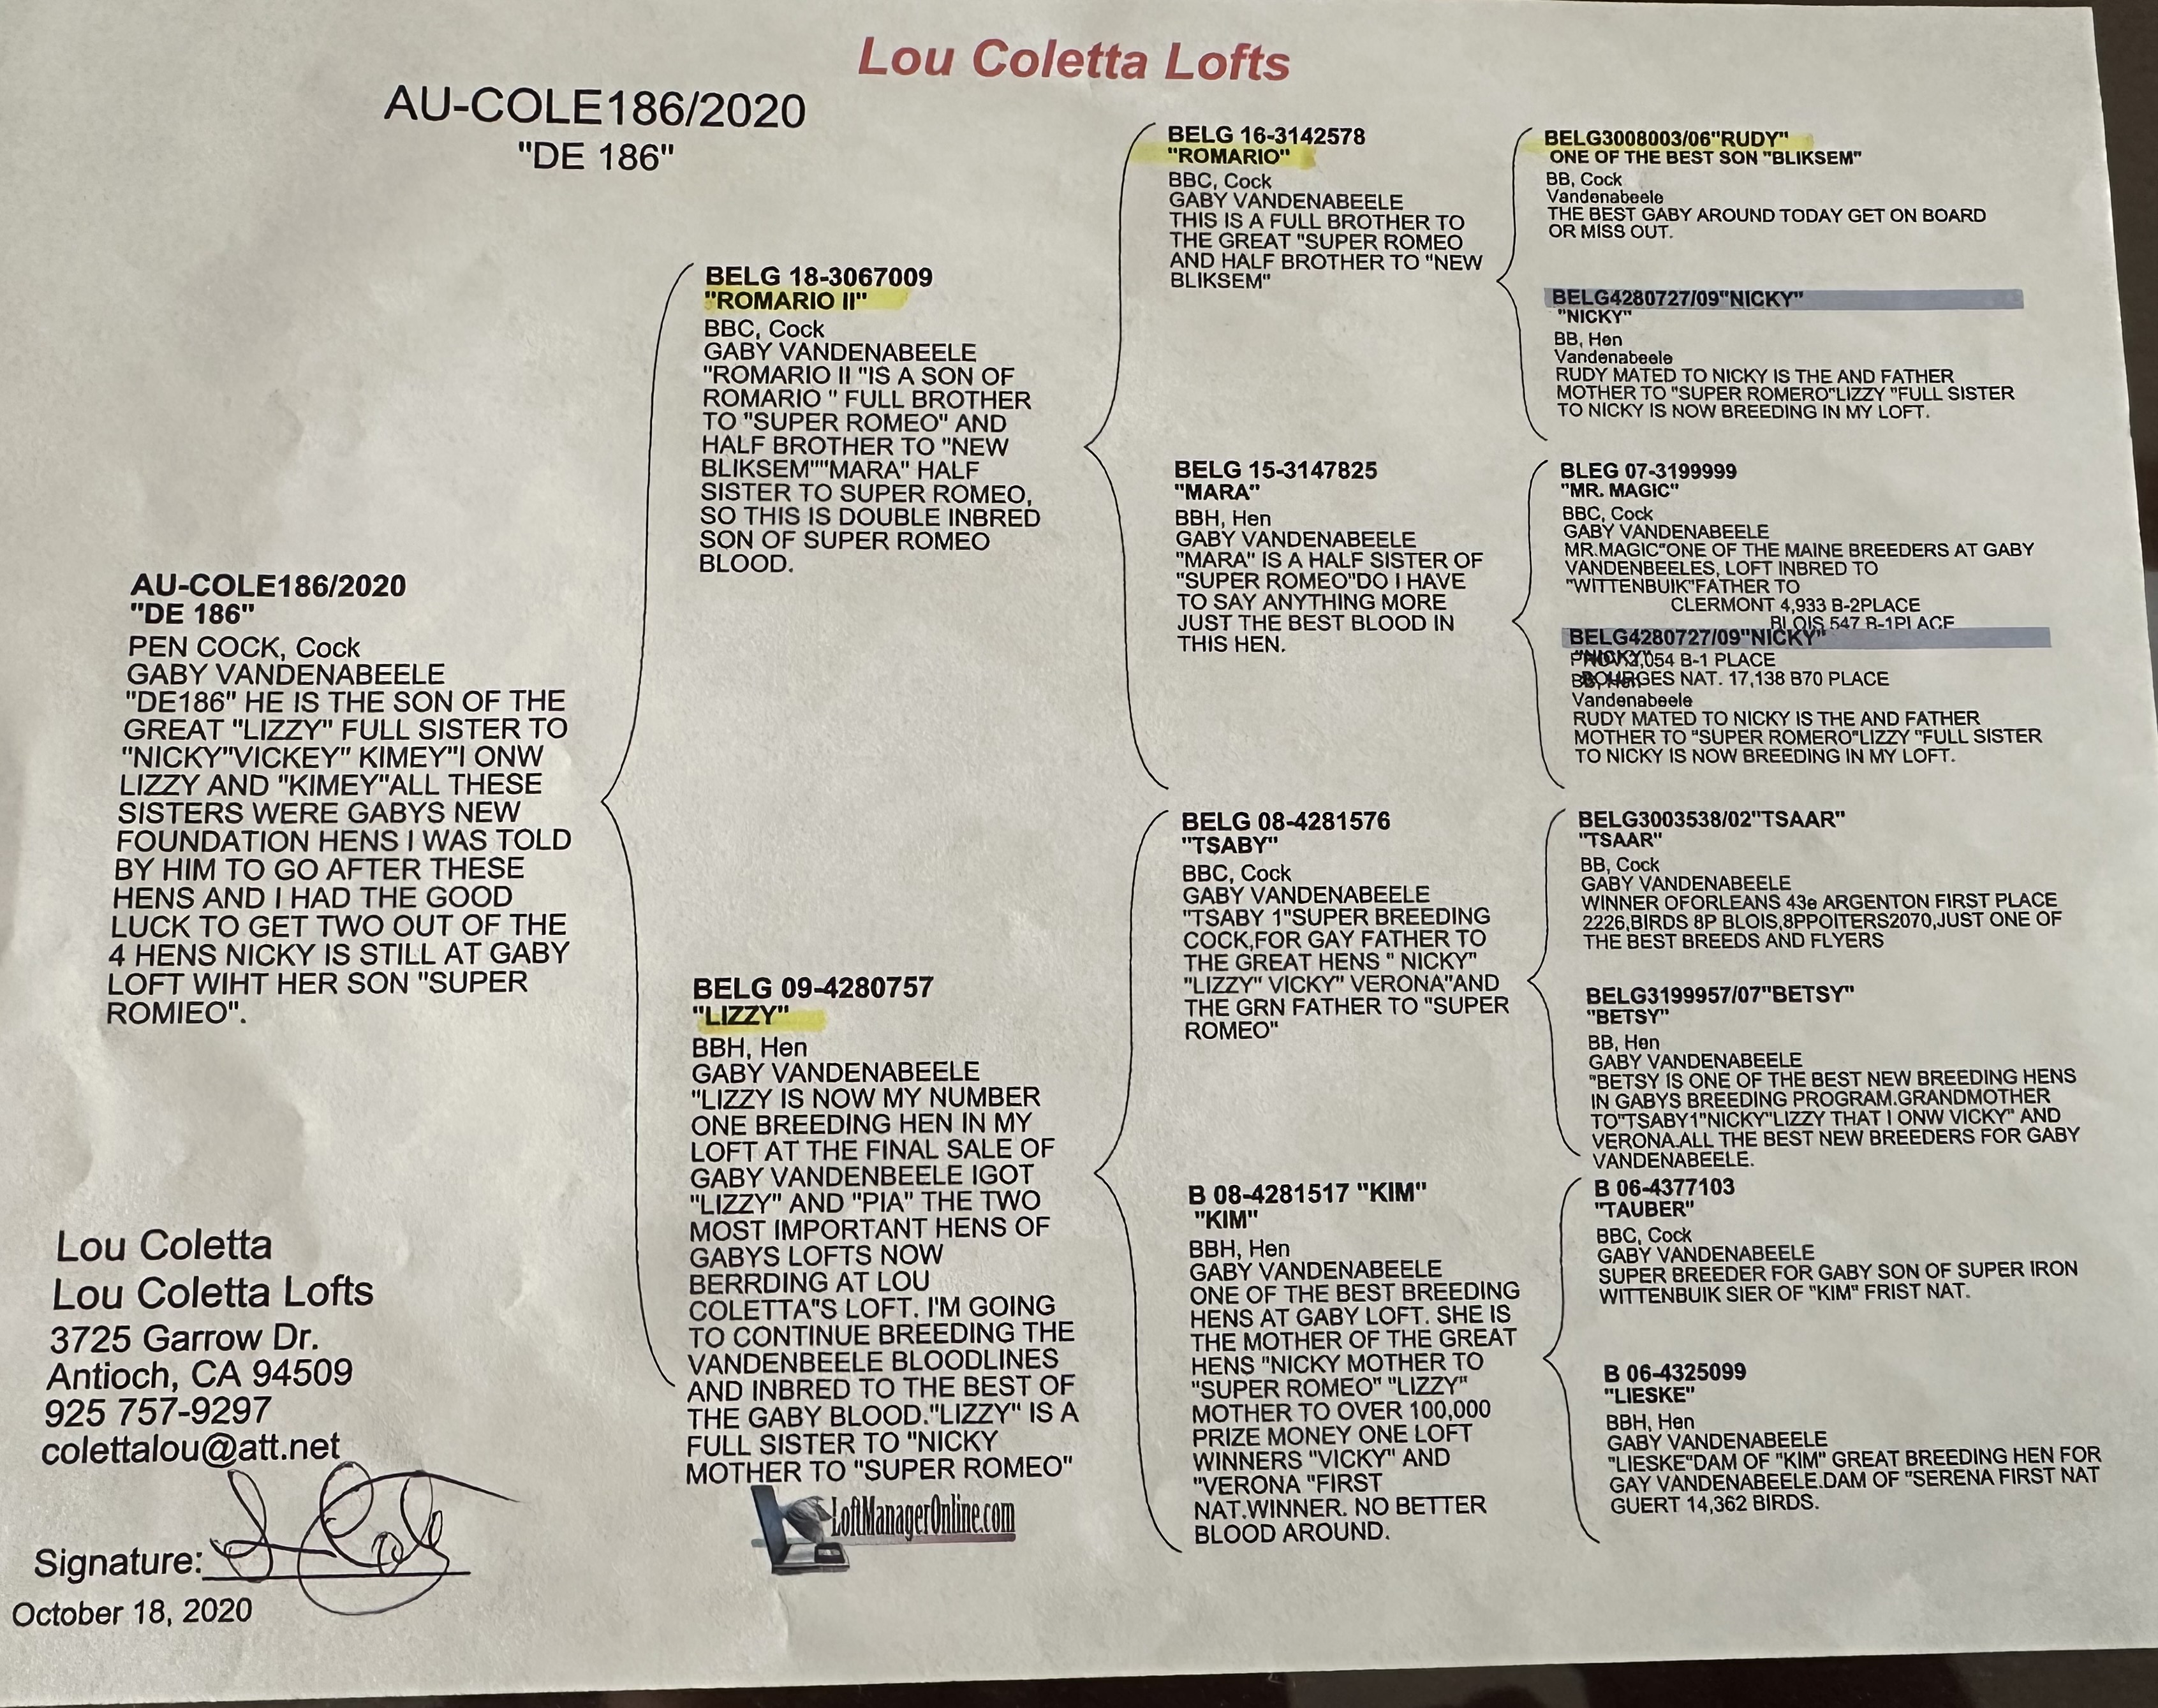 Lou Coletta Lofts
AU-COLE186/2020
"DE 186"
AU-COLE186/2020
"DE 186"
PEN COCK, Cock
GABY VANDENABEELE
"DE186" HE IS THE SON OF THE
GREAT "LIZZY" FULL SISTER TO
"NICKY"VICKEY" KIMEY"I ONW
LIZZY AND "KIMEY"ALL THESE
SISTERS WERE GABYS NEW
FOUNDATION HENS I WAS TOLD
BY HIM TO GO AFTER THESE
HENS AND I HAD THE GOOD
LUCK TO GET TWO OUT OF THE
4 HENS NICKY IS STILL AT GABY
LOFT WIHT HER SON "SUPER
ROMIEO".
Lou Coletta
Lou Coletta Lofts
3725 Garrow Dr.
Antioch, CA 94509
925 757-9297
colettalou@att.net
Signature:
October 18, 2020
BELG 18-3067009
"ROMARIO II"
BBC, Cock
GABY VANDENABEELE
"ROMARIO II "IS A SON OF
ROMARIO " FULL BROTHER
TO "SUPER ROMEO" AND
HALF BROTHER TO "NEW
BLIKSEM""MARA" HALF
SISTER TO SUPER ROMEO,
SO THIS IS DOUBLE INBRED
SON OF SUPER ROMEO
BLOOD.
BELG 09-4280757
"LIZZY"
BBH, Hen
GABY VANDENABEELE
"LIZZY IS NOW MY NUMBER
ONE BREEDING HEN IN MY
LOFT AT THE FINAL SALE OF
GABY VANDENBEELE IGOT
"LIZZY" AND "PIA" THE TWO
MOST IMPORTANT HENS OF
GABYS LOFTS NOW
BERRDING AT LOU
COLETTA"S LOFT. I'M GOING
TO CONTINUE BREEDING THE
VANDENBEELE BLOODLINES
AND INBRED TO THE BEST OF
THE GABY BLOOD."LIZZY" IS A
FULL SISTER TO "NICKY
MOTHER TO "SUPER ROMEO"
LoftManagerOnline.com
BELG 16-3142578
"ROMARIO"
BBC, Cock
GABY VANDENABEELE
THIS IS A FULL BROTHER TO
THE GREAT "SUPER ROMEO
AND HALF BROTHER TO "NEW
BLIKSEM"
BELG 15-3147825
"MARA"
BBH, Hen
GABY VANDENABEELE
"MARA" IS A HALF SISTER OF
"SUPER ROMEO"DO I HAVE
TO SAY ANYTHING MORE
JUST THE BEST BLOOD IN
THIS HEN.
BELG 08-4281576
"TSABY"
BBC, Cock
GABY VANDENABEELE
"TSABY 1"SUPER BREEDING
COCK,FOR GAY FATHER TO
THE GREAT HENS " NICKY"
"LIZZY" VICKY" VERONA"AND
THE GRN FATHER TO "SUPER
ROMEO"
B 08-4281517 "KIM"
"KIM"
BBH, Hen
GABY VANDENABEELE
ONE OF THE BEST BREEDING
HENS AT GABY LOFT. SHE IS
THE MOTHER OF THE GREAT
HENS "NICKY MOTHER TO
"SUPER ROMEO" "LIZZY"
MOTHER TO OVER 100,000
PRIZE MONEY ONE LOFT
WINNERS "VICKY" AND
"VERONA "FIRST
NAT.WINNER. NO BETTER
BLOOD AROUND.
BELG3008003/06"RUDY"
ONE OF THE BEST SON "BLIKSEM"
BB, Cock
Vandenabeele
THE BEST GABY AROUND TODAY GET ON BOARD
OR MISS OUT.
BELG4280727/09"NICKY"
"NICKY"
BB, Hen
Vandenabeele
RUDY MATED TO NICKY IS THE AND FATHER
MOTHER TO "SUPER ROMERO"LIZZY "FULL SISTER
TO NICKY IS NOW BREEDING IN MY LOFT.
BLEG 07-3199999
"MR. MAGIC"
BBC, Cock
GABY VANDENABEELE
MR.MAGIC"ONE OF THE MAINE BREEDERS AT GABY
VANDENBEELES, LOFT INBRED TO
"WITTENBUIK"FATHER TO
CLERMONT 4,933 B-2PLACE
BLOIS 547 B-1PLACE
BELG4280727/09"NICKY"
"NICKY"
2,054 B-1 PLACE
BOURGES NAT. 17,138 B70 PLACE
BB, Hen
Vandenabeele
RUDY MATED TO NICKY IS THE AND FATHER
MOTHER TO "SUPER ROMERO"LIZZY "FULL SISTER
TO NICKY IS NOW BREEDING IN MY LOFT.
BELG3003538/02"TSAAR"
"TSAAR"
BB, Cock
GABY VANDENABEELE
WINNER OFORLEANS 43e ARGENTON FIRST PLACE
2226,BIRDS 8P BLOIS,8PPOITERS2070,JUST ONE OF
THE BEST BREEDS AND FLYERS
BELG3199957/07"BETSY"
"BETSY"
BB, Hen
GABY VANDENABEELE
"BETSY IS ONE OF THE BEST NEW BREEDING HENS
IN GABYS BREEDING PROGRAM.GRANDMOTHER
TO"TSABY1"NICKY"LIZZY THAT I ONW VICKY" AND
VERONA.ALL THE BEST NEW BREEDERS FOR GABY
VANDENABEELE.
B 06-4377103
"TAUBER"
BBC, Cock
GABY VANDENABEELE
SUPER BREEDER FOR GABY SON OF SUPER IRON
WITTENBUIK SIER OF "KIM" FRIST NAT.
B 06-4325099
"LIESKE"
BBH, Hen
GABY VANDENABEELE
"LIESKE"DAM OF "KIM" GREAT BREEDING HEN FOR
GAY VANDENABEELE.DAM OF "SERENA FIRST NAT
GUERT 14,362 BIRDS.